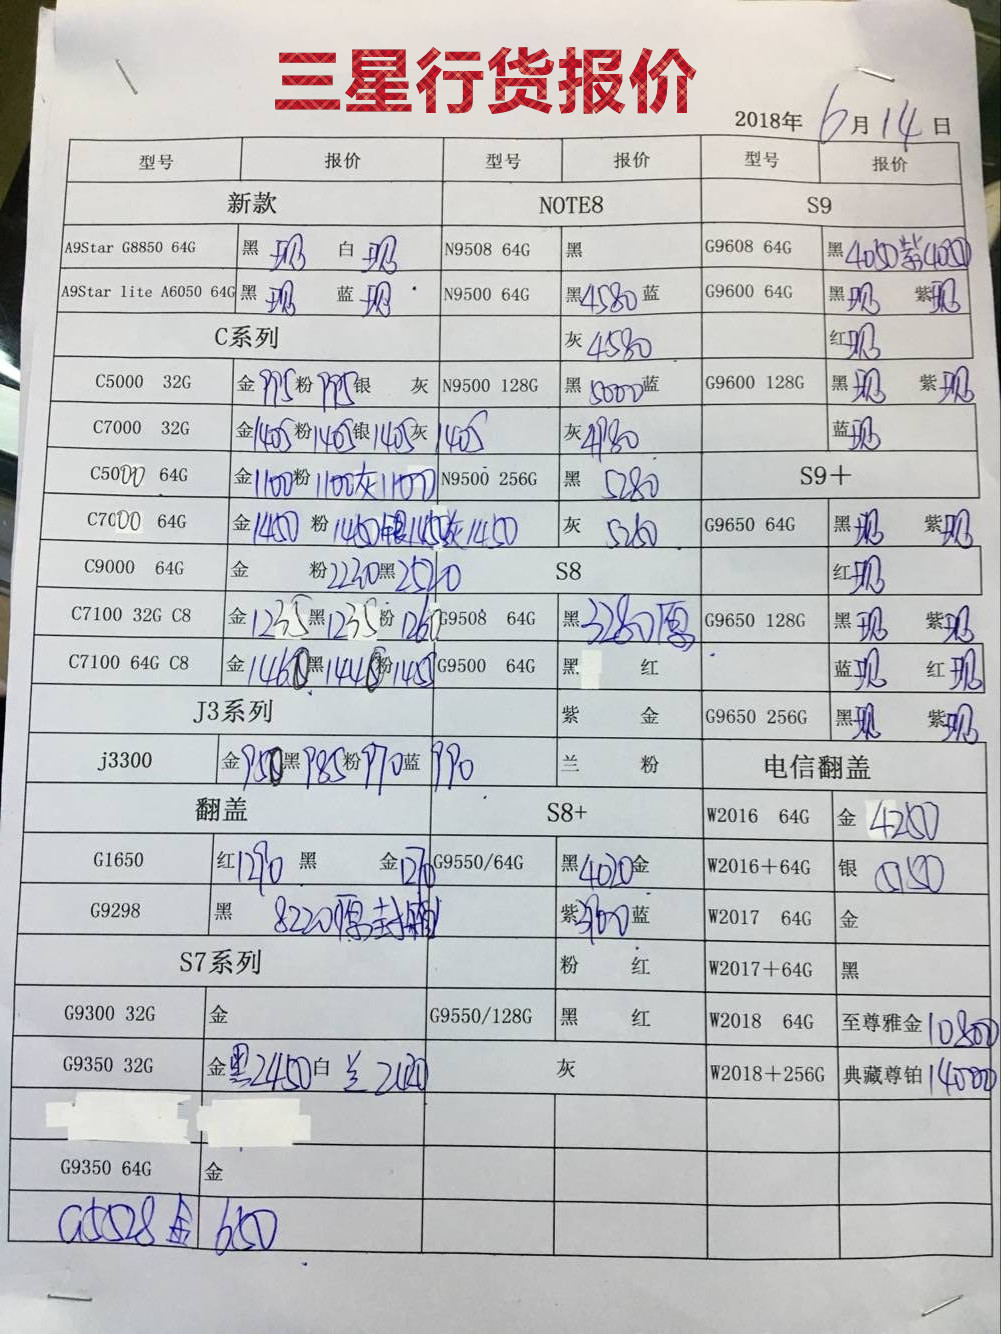 三星行货报价
2018年 6月14日
型号 报价 型号 报价 型号 报价
新款 NOTE8 S9
A9Star G8850 64G 黑 现 白 现 N9508 64G 黑 G9608 64G 黑4050紫4050
A9Star lite A6050 64G 黑 现 蓝 现 N9500 64G 黑4580蓝 G9600 64G 黑现 紫现
C系列 灰4580 红现
C5000 32G 金995粉995银 灰 N9500 128G 黑5000蓝 G9600 128G 黑现 紫现
C7000 32G 金1405粉1405银1405灰1405 灰4980 蓝现
C5000 64G 金1100粉1100灰1100 N9500 256G 黑 5280 S9+
C7000 64G 金1450 粉1450银1450灰1450 灰 5260 G9650 64G 黑现 紫现
C9000 64G 金 粉2230黑2520 S8 红现
C7100 32G C8 金1235黑1235粉1260 G9508 64G 黑3280原 G9650 128G 黑现 紫现
C7100 64G C8 金1460黑1440粉1450 G9500 64G 黑 红 蓝现 红现
J3系列 紫 金 G9650 256G 黑现 紫现
j3300 金950黑985粉970蓝990 兰 粉 电信翻盖
翻盖 S8+ W2016 64G 金 4250
G1650 红1290 黑 金1270 G9550/64G 黑4020金 W2016+64G 银 5150
G9298 黑 8220原封 紫3900蓝 W2017 64G 金
S7系列 粉 红 W2017+64G 黑
G9300 32G 金 G9550/128G 黑 红 W2018 64G 至尊雅金10800
G9350 32G 金黑2450白 兰2420 灰 W2018+256G 典藏尊铂14000
G9350 64G 金
G5528金 650